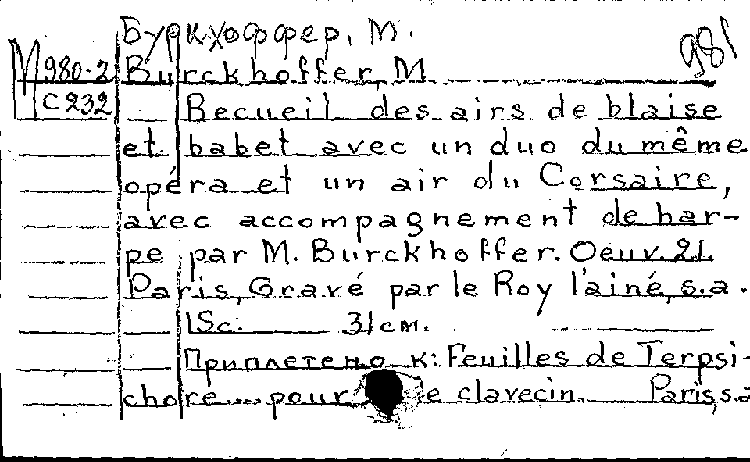 Буркхоффер, М.
981
М 980-2 Burckhoffer, M
С 232 Recueil des airs de blaise
et babet avec un duo du même
opéra et un air du Corsaire,
avec accompagnement de har-
pe par M. Burckhoffer. Oeuv. 21.
Paris, Gravé par le Roy l'ainé, s.a.
15c. 31см.
Приплетено к: Feuilles de Terpsi-
chore... pour le clavecin. Paris, s.a